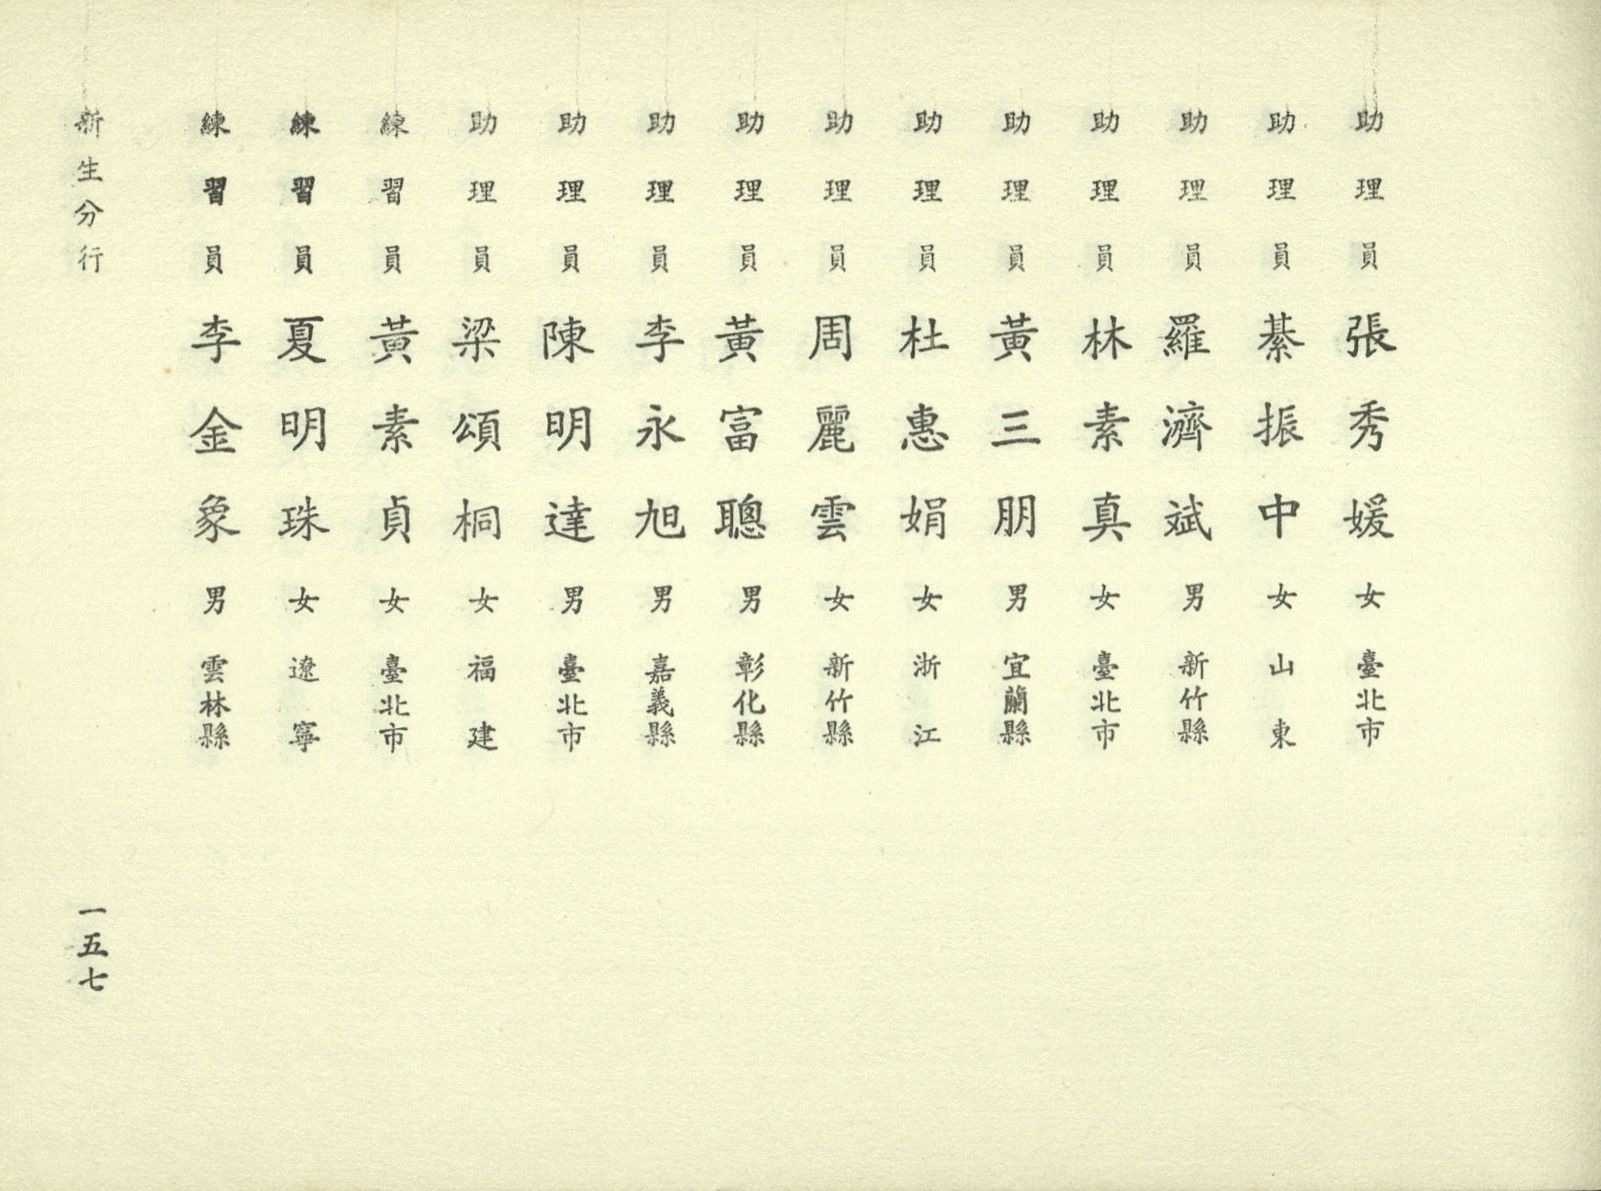 助理員 張秀媛 女 臺北市
助理員 綦振中 女 山東
助理員 羅濟斌 男 新竹縣
助理員 林素真 女 臺北市
助理員 黃三朋 男 宜蘭縣
助理員 杜惠娟 女 浙江
助理員 周麗雲 女 新竹縣
助理員 黃富聰 男 彰化縣
助理員 李永旭 男 嘉義縣
助理員 陳明達 男 臺北市
助理員 梁頌桐 女 福建
練習員 黃素貞 女 臺北市
練習員 夏明珠 女 遼寧
練習員 李金象 男 雲林縣
新生分行 一五七